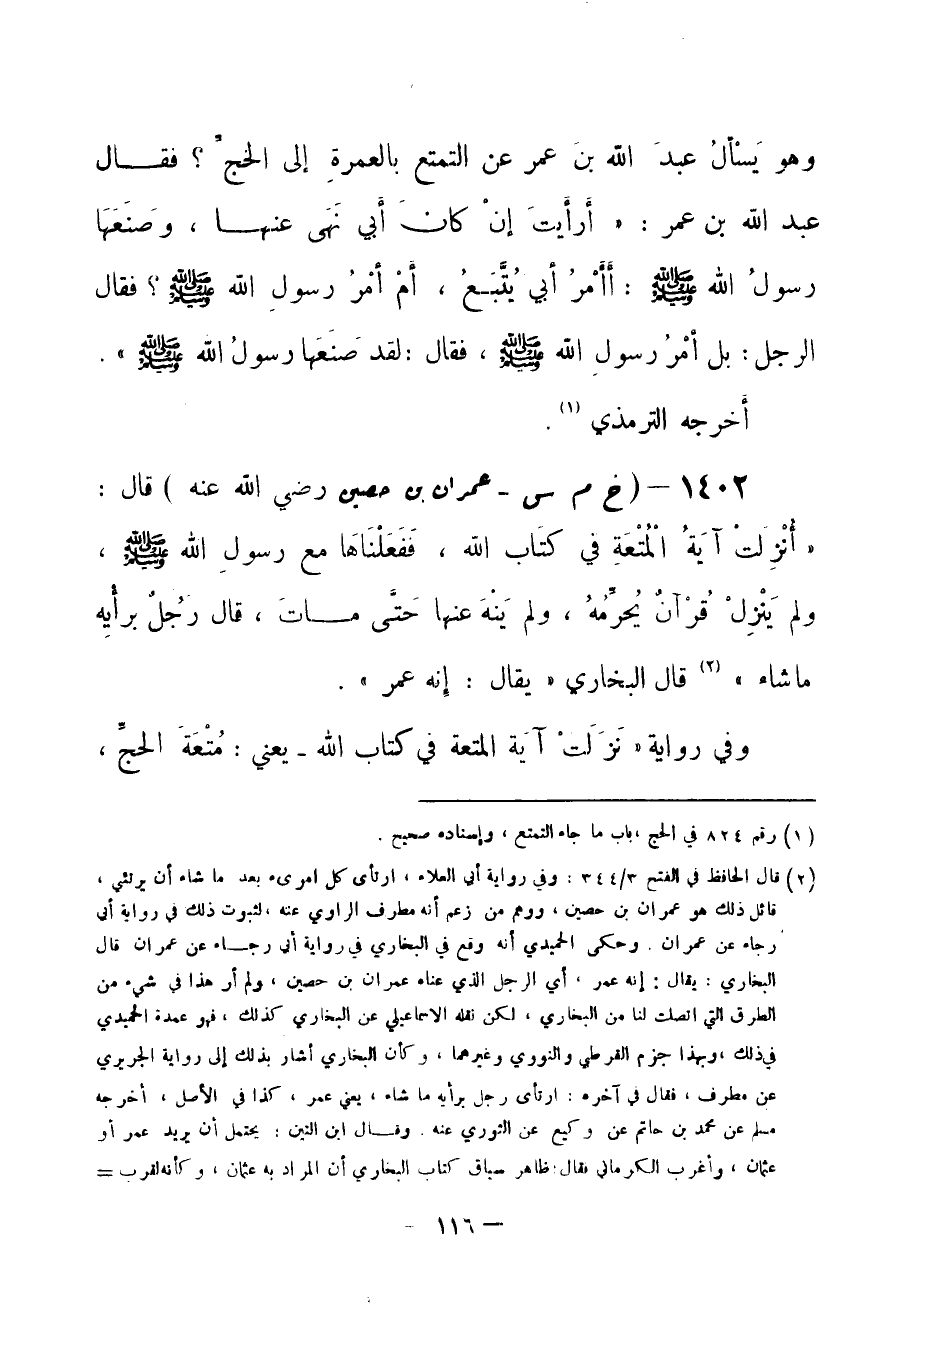 وهو يَسْألُ عبدَ الله بنَ عمر عن التمتع بالعمرةِ إلى الحجِّ ؟ فقال
عبد الله بن عمر : « أرأيتَ إنْ كانَ أبي نَهَى عنها ، وصَنَعَهَا
رسولُ الله ﷺ : أَأَمْرُ أبي يُتَّبَعُ ، أمْ أمْرُ رسولِ الله ﷺ ؟ فقال
الرجل : بل أمْرُ رسولِ الله ﷺ ، فقال : لقد صَنَعَها رسولُ الله ﷺ » .
أخرجه الترمذي (١) .
١٤٠٢ – ( خ م س - عمران بن حصين رضي الله عنه ) قال :
« أُنْزِلَتْ آيَةُ الْمُتْعَةِ في كتَاب الله ، فَفَعَلْنَاهَا مع رسولِ الله ﷺ ،
ولم يَنْزِلْ قُرْآنٌ يُحَرِّمُهُ ، ولم يَنْهَ عنها حَتَّى مات ، قال رَجُلٌ برأيِه
ماشاء » (٢) قال البخاري « يقال : إنه عمر » .
وفي رواية « نَزَلَتْ آيَة المتعة في كتاب الله - يعني : مُتْعَةَ الحجِّ ،
(١) رقم ٨٢٤ في الحج ، باب ما جاء التمتع ، وإسناده صحيح .
(٢) قال الحافظ في الفتح ٣٤٤/٣ : وفي رواية أبي العلاء ، ارتأى كل امرىء بعد ما شاء أن يرتئي ،
قائل ذلك هو عمران بن حصين ، ووهم من زعم أنه مطرف الراوي عنه ، لثبوت ذلك في رواية أبي
رجاء عن عمران . وحكى الحميدي أنه وقع في البخاري في رواية أبي رجاء عن عمران قال
البخاري : يقال : إنه عمر ، أي الرجل الذي عناه عمران بن حصين ، ولم أر هذا في شيء من
الطرق التي اتصلت لنا من البخاري ، لكن نقله الاسماعيلي عن البخاري كذلك ، فهو عمدة الحميدي
في ذلك ، وبهذا جزم القرطبي والنووي وغيرهما ، وكأن البخاري أشار بذلك إلى رواية الجريري
عن مطرف ، فقال في آخره : ارتأى رجل برأيه ما شاء ، يعني عمر ، كذا في الأصل ، أخرجه
مسلم عن محمد بن حاتم عن وكيع عن الثوري عنه . وقال ابن التين : يحتمل أن يريد عمر أو
عثمان ، وأغرب الكرماني فقال : ظاهر سياق كتاب البخاري أن المراد به عثمان ، وكأنه لقرب =
– ١١٦ -